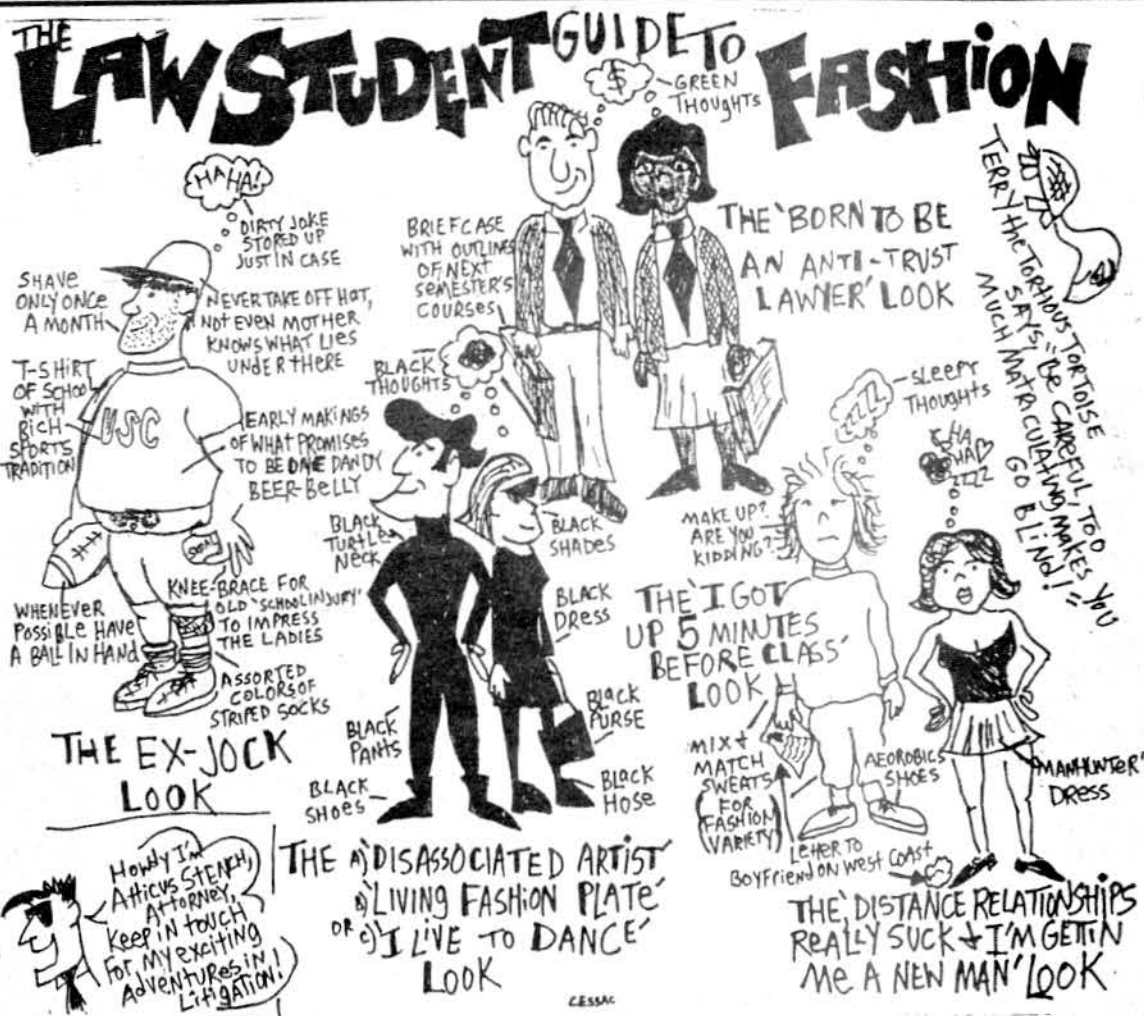 THE
LAW STUDENT
GUIDE TO
FASHION
$
GREEN
THOUGHTS
HA HA!
DIRTY JOKE
STORED UP
JUST IN CASE
SHAVE
ONLY ONCE
A MONTH
NEVER TAKE OFF HAT,
NOT EVEN MOTHER
KNOWS WHAT LIES
UNDER THERE
T-SHIRT
OF SCHOOL
WITH
RICH
SPORTS
TRADITION
USC
EARLY MAKINGS
OF WHAT PROMISES
TO BE ONE DANDY
BEER-BELLY
WHENEVER
POSSIBLE HAVE
A BALL IN HAND
KNEE-BRACE FOR
OLD 'SCHOOL INJURY'
TO IMPRESS
THE LADIES
ASSORTED
COLORS OF
STRIPED SOCKS
THE EX-JOCK
LOOK
BRIEFCASE
WITH OUTLINES
OF NEXT
SEMESTER'S
COURSES
THE 'BORN TO BE
AN ANTI-TRUST
LAWYER' LOOK
BLACK
THOUGHTS
BLACK
TURTLE
NECK
BLACK
SHADES
BLACK
DRESS
BLACK
PURSE
BLACK
PANTS
BLACK
SHOES
BLACK
HOSE
THE A) 'DISASSOCIATED ARTIST'
B) 'LIVING FASHION PLATE'
OR C) 'I LIVE TO DANCE'
LOOK
SLEEPY
THOUGHTS
ZZZZ
MAKE UP?
ARE YOU
KIDDING?
THE 'I GOT
UP 5 MINUTES
BEFORE CLASS'
LOOK
MIX &
MATCH
SWEATS
(FOR
FASHION
VARIETY)
AEOROBICS
SHOES
LETTER TO
BOYFRIEND ON WEST COAST
HA
HA
ZZZ
'MANHUNTER'
DRESS
THE 'DISTANCE RELATIONSHIPS
REALLY SUCK & I'M GETTIN
ME A NEW MAN' LOOK
TERRY the TORTIOUS TORTOISE
SAYS, "BE CAREFUL, TOO
MUCH MATRICULATING MAKES YOU
GO BLIND!"
Howdy I'm
Atticus STENCH,
Attorney,
Keep in touch
For my exciting
Adventures in
Litigation!
CESSAC